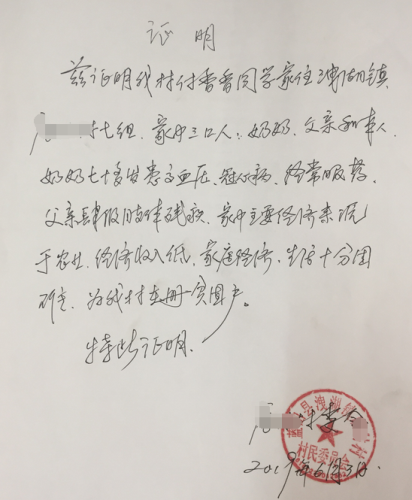 证明
兹证明我村付香香同学家住洩湖镇
村七组、家中三口人：奶奶、父亲和本人
奶奶七十多岁患高血压、冠心病、经常吸药、
父亲肢体残疾、家中主要经济来况
于农业、经济收入低、家庭经济、生活十分困
难、为我村在册一贫困户。
特此证明.
村委会
村民委员会
2019年6月3日.